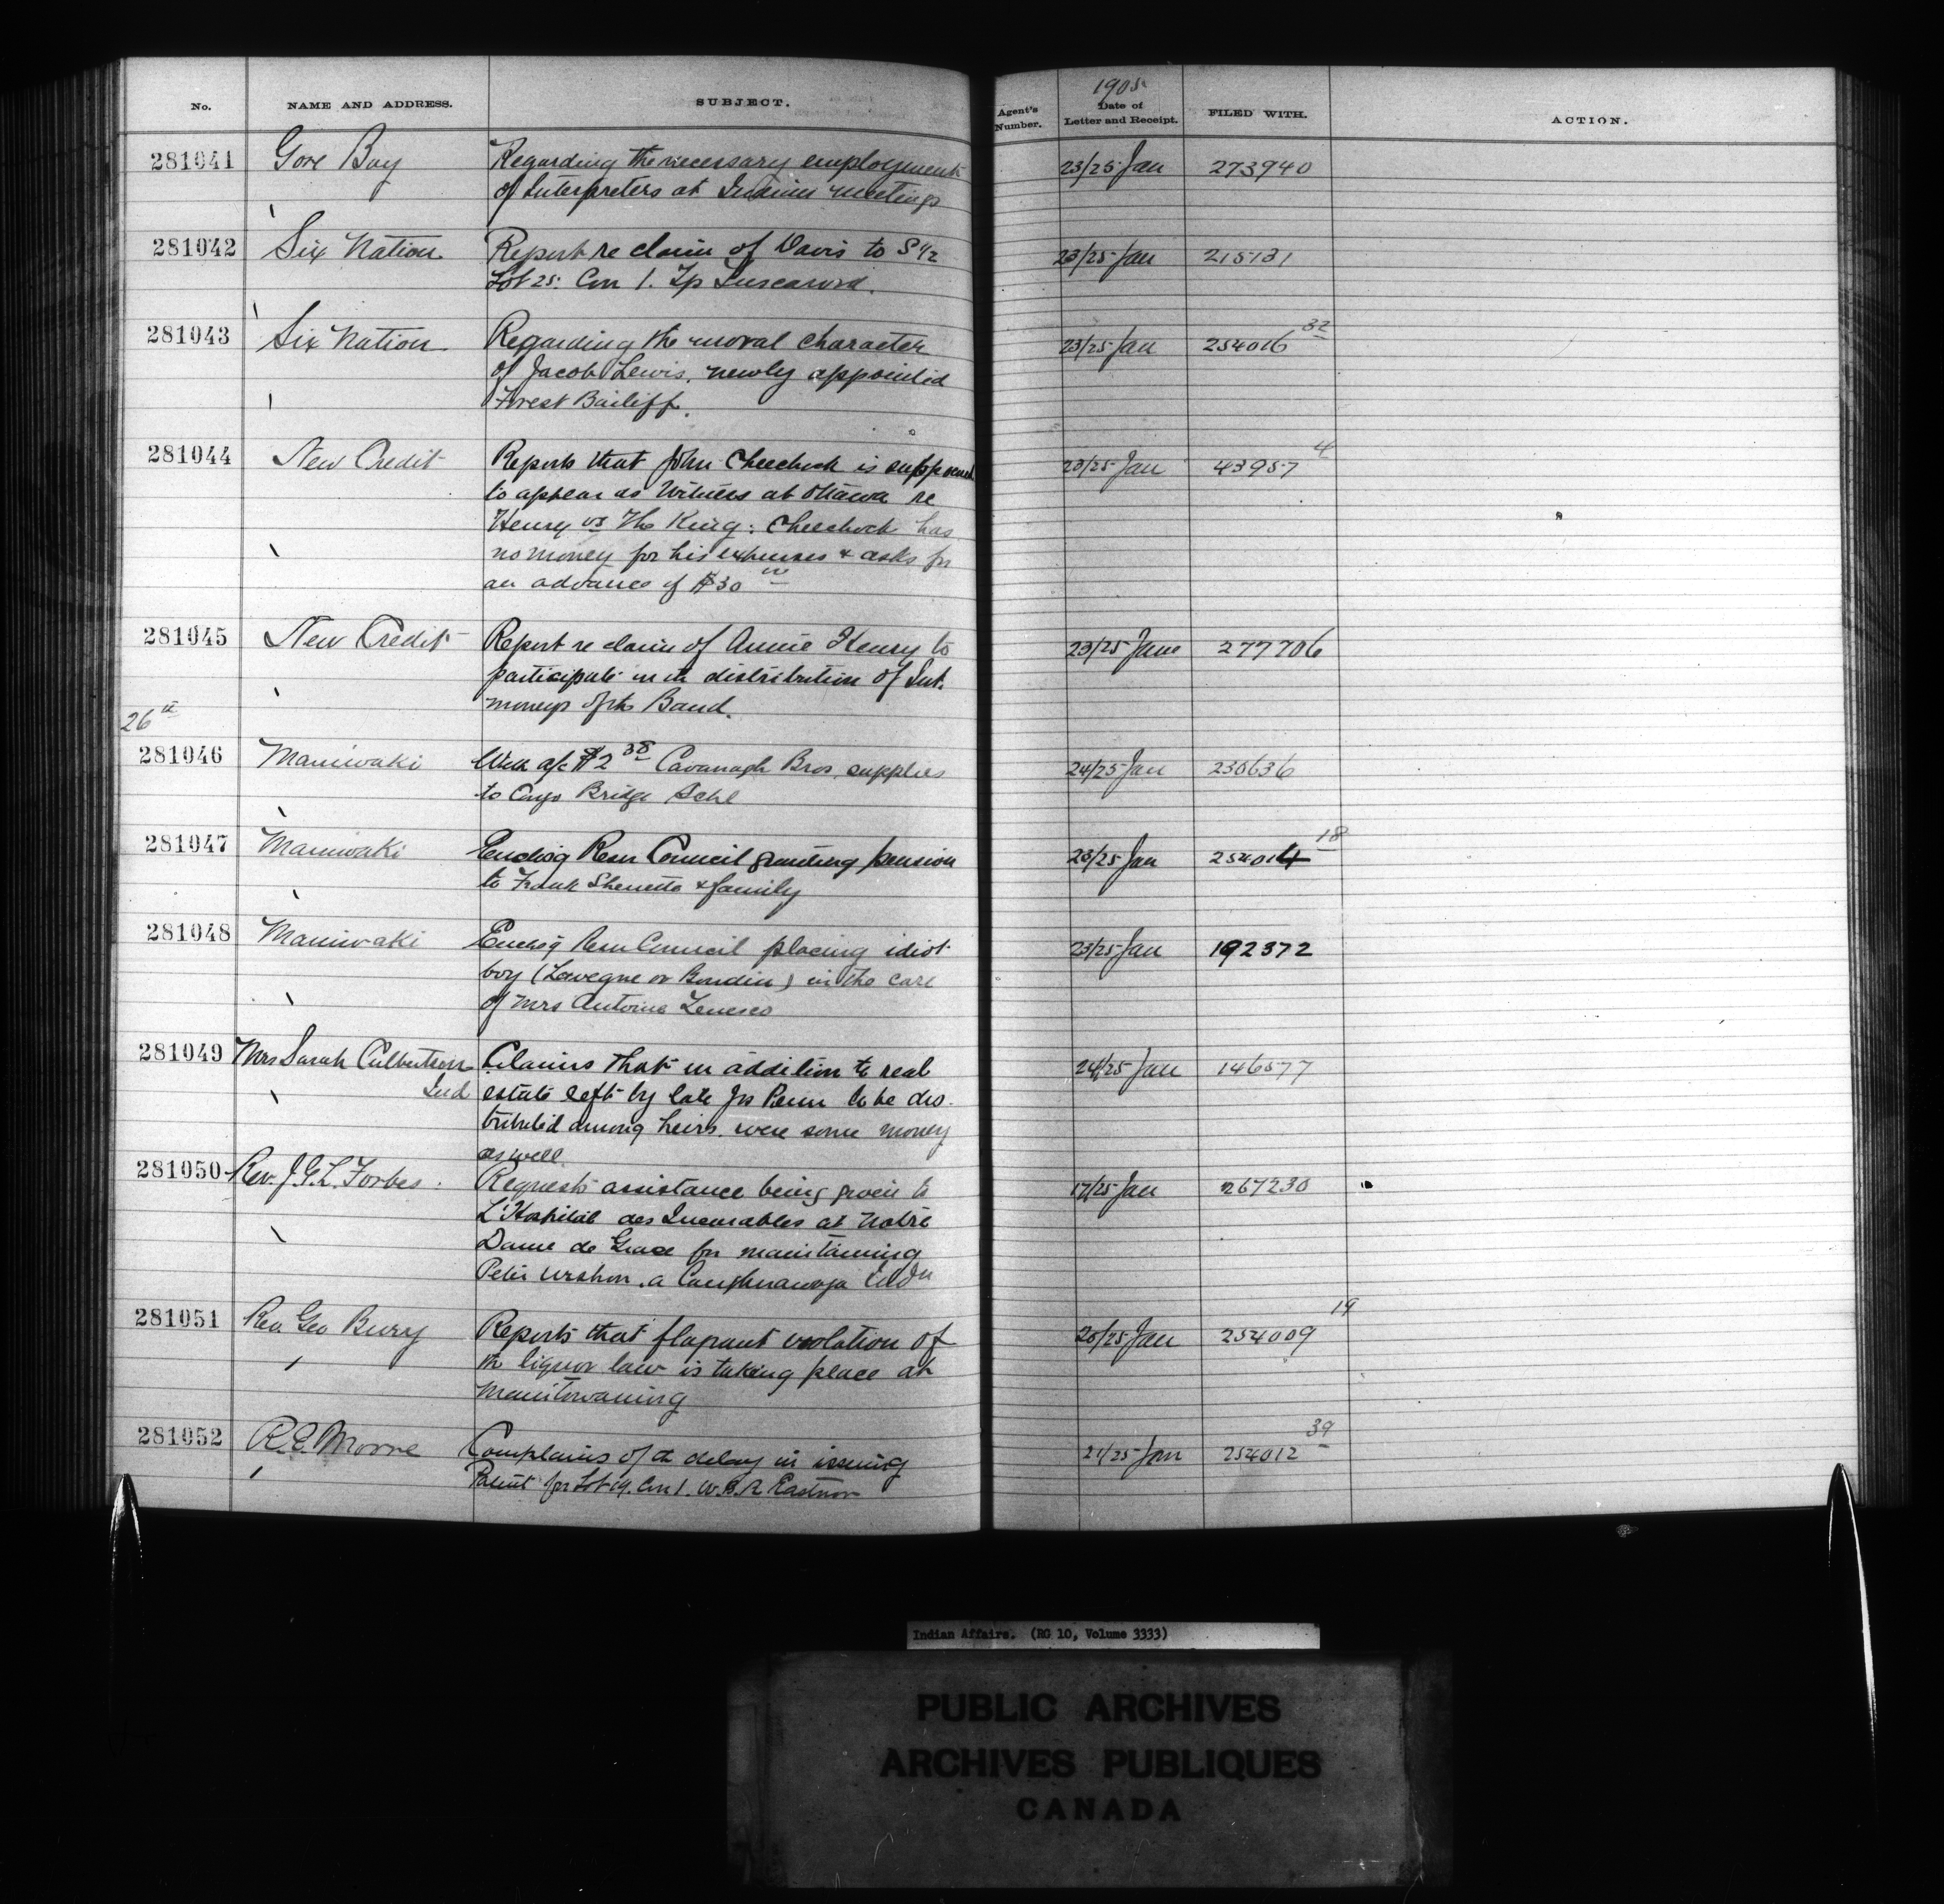 No. NAME AND ADDRESS. SUBJECT. Agent's Number. 1905 Date of Letter and Receipt. FILED WITH. ACTION.
281041 Gore Bay Regarding the necessary employment 23/25 Jan 273940
of Interpreters at Indian meetings
281042 Six Nation Report re claim of Davis to S 1/2 23/25 Jan 215131
Lot 25. Con 1. Tp Tuscarora.
281043 Six Nation Regarding the moral character 23/25 Jan 254016 32
of Jacob Lewis, newly appointed
Forest Bailiff.
281044 New Credit Reports that John Cheechock is 23/25 Jan 43957 4
to appear as Witness at Ottawa re
Henry vs The King: Cheechock has
no money for his expenses & asks for
an advance of $30 00
281045 New Credit Report re claim of Annie Henry to 23/25 Jan 277706
participate in th distribution of Int.
moneys of th Band.
26th
281046 Maniwaki a/c $2 38 Cavanagh Bros. supplies 24/25 Jan 230636
to Congo Bridge Schl
281047 Maniwaki Enclosg Resn Council granting pension 23/25 Jan 254014 18
to Frank & family
281048 Maniwaki Enclosg Resn Council placing idiot 23/25 Jan 192372
boy (Lavegne or ) in the care
of Mrs Antoine
281049 Mrs Sarah Culbertson Claims that in addition to real 24/25 Jan 146577
Ind estate left by late Jos Penn to be dis-
tributed among heirs. were some money
as well
281050 Rev. J.G.L. Forbes. Requests assistance being given to 17/25 Jan 267230
L'Hospital des Incurables at Notre
Dame de Grace for maintaining
Peter a Caughnawaga Indn
281051 Rev Geo Bury Reports that flagrant violation of 20/25 Jan 254009 19
th liquor law is taking place at
Manitowaning
281052 R.E. Moore Complains of th delay in issuing 21/25 Jan 254012 39
Patent for Lot 19. Con 1. W.B.R Eastnor
Indian Affairs. (RG 10, Volume 3333)
PUBLIC ARCHIVES
ARCHIVES PUBLIQUES
CANADA